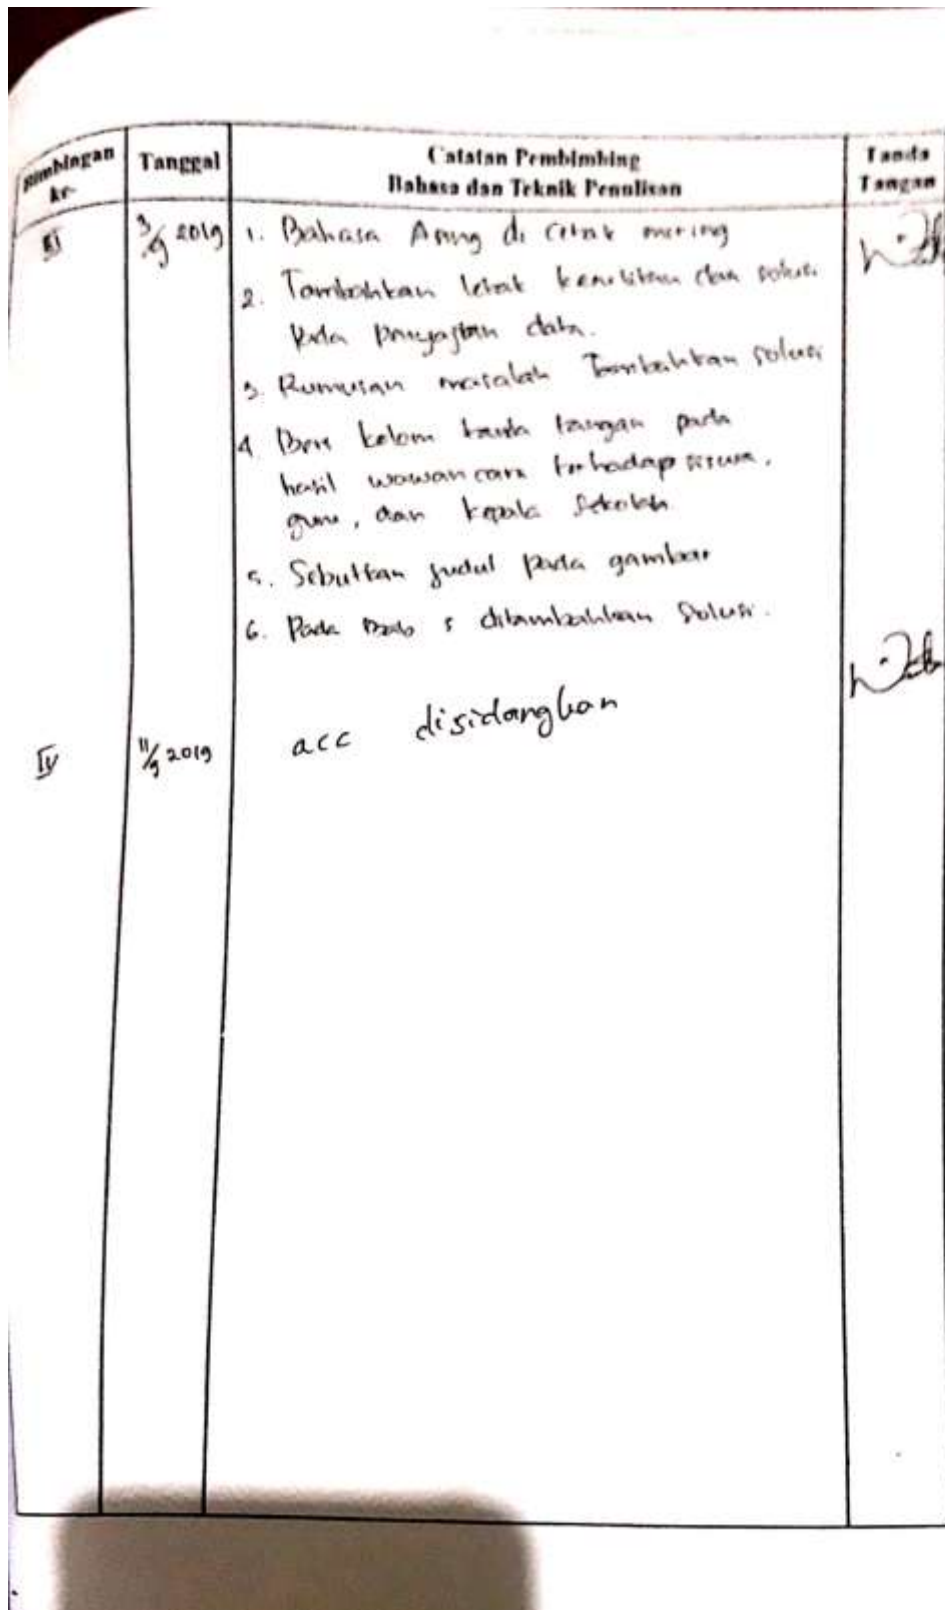 Bimbingan Tanggal Catatan Pembimbing Tanda
ke- Bahasa dan Teknik Penulisan Tangan
III 3/9 2019 1. Bahasa Asing di cetak miring
2. Tambahkan letak dan solusi
Pada Penyajian data.
3. Rumusan masalah Tambahkan solusi
4 Beri kolom tanda tangan pada
hasil wawancara terhadap siswa,
guru, dan kepala sekolah
5. Sebutkan judul pada gambar
6. Pada Bab 5 ditambahkan Solusi.
IV 11/9 2019 acc disidangkan